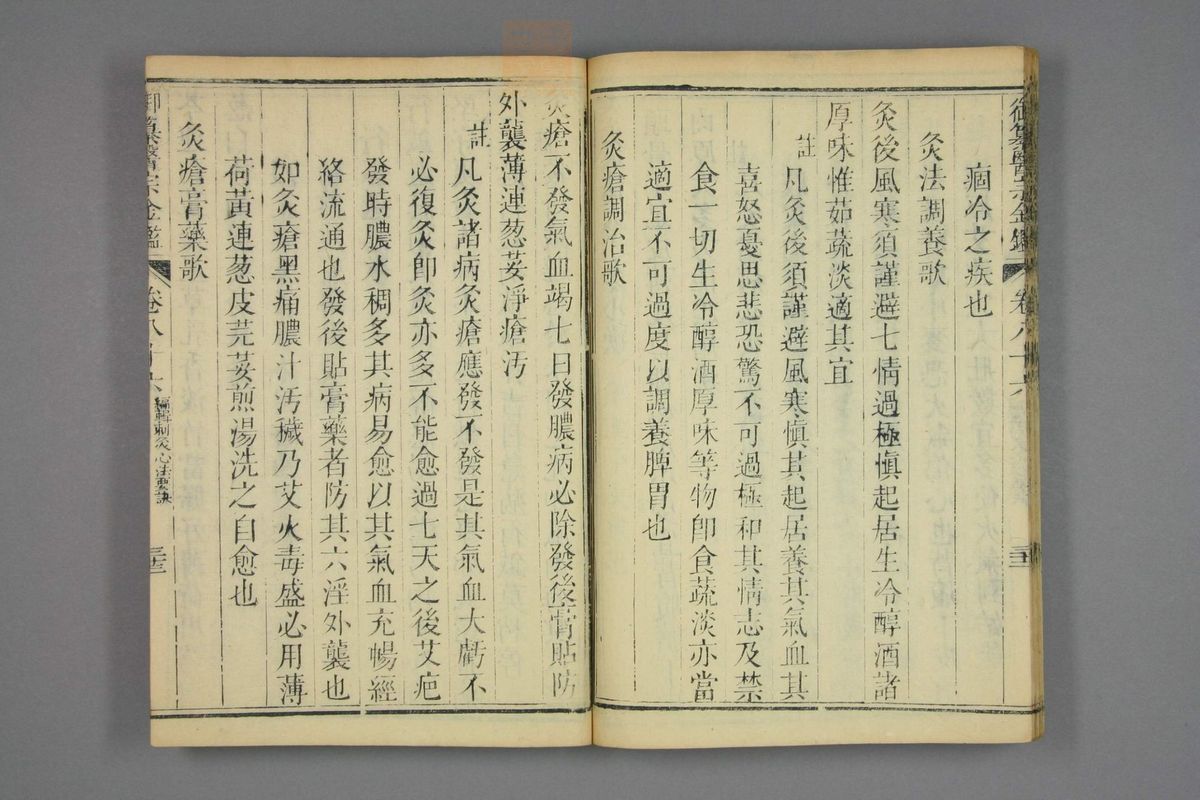 御纂醫宗金鑑 卷八十六
痼冷之疾也
灸法調養歌
灸後風寒須謹避七情過極愼起居生冷醇酒諸
厚味惟茹蔬淡適其宜
註
凡灸後須謹避風寒愼其起居養其氣血其
喜怒憂思悲恐驚不可過極和其情志及禁
食一切生冷醇酒厚味等物卽食蔬淡亦當
適宜不可過度以調養脾胃也
灸瘡調治歌
灸瘡不發氣血竭七日發膿病必除發後膏貼防
外襲薄連葱荽淨瘡汚
註
凡灸諸病灸瘡應發不發是其氣血大虧不
必復灸卽灸亦多不能愈過七天之後艾疤
發時膿水稠多其病易愈以其氣血充暢經
絡流通也發後貼膏藥者防其六淫外襲也
如灸瘡黑痛膿汁汚穢乃艾火毒盛必用薄
荷黃連葱皮芫荽煎湯洗之自愈也
灸瘡膏藥歌
御纂醫宗金鑑 卷八十六 編輯刺灸心法要訣